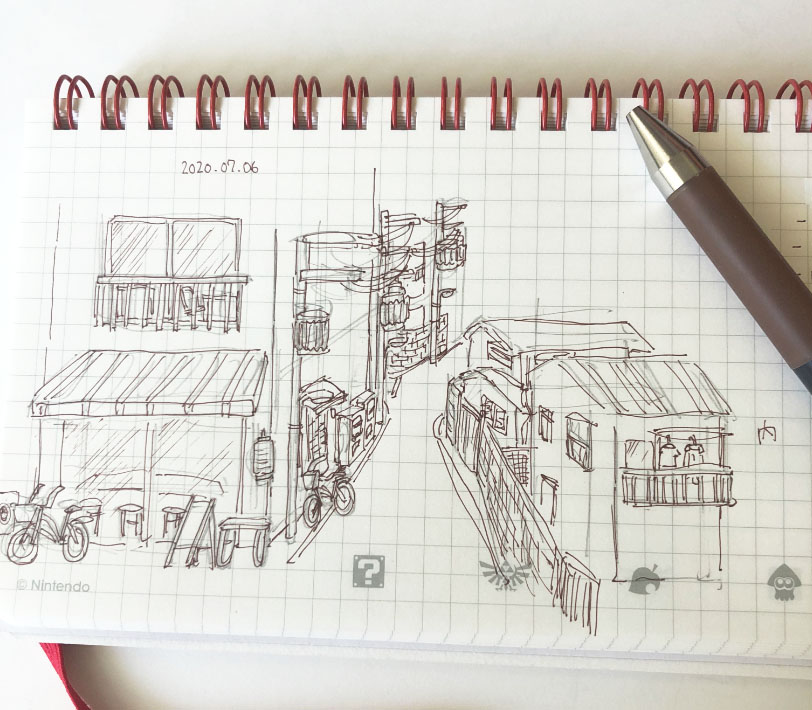 2020.07.06
内
© Nintendo
?